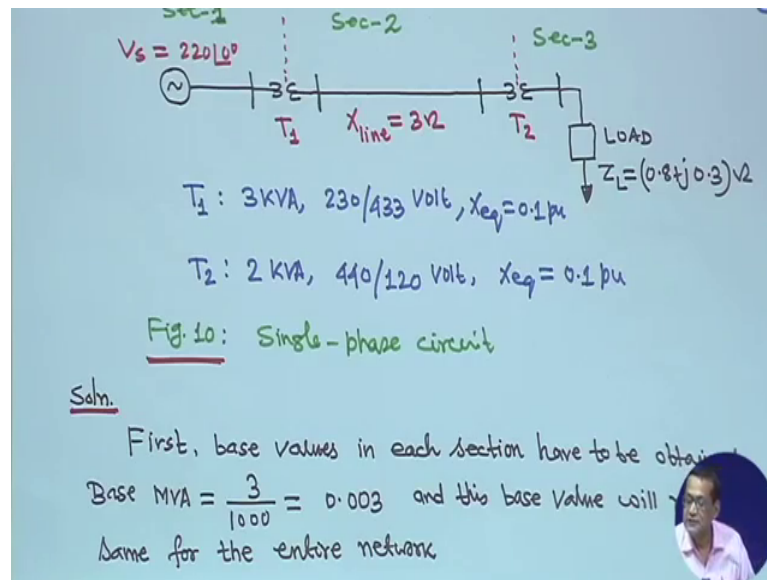 Sec-1
Sec-2
Sec-3
Vs = 220∠0°
T1
Xline = 3Ω
T2
LOAD
ZL = (0.8+j0.3)Ω
T1: 3KVA, 230/433 Volt, Xeq = 0.1 pu
T2: 2 KVA, 440/120 Volt, Xeq = 0.1 pu
Fig. 10: Single-phase circuit
Soln.
First, base values in each section have to be
Base MVA = 3/1000 = 0.003 and this base value will
same for the entire network